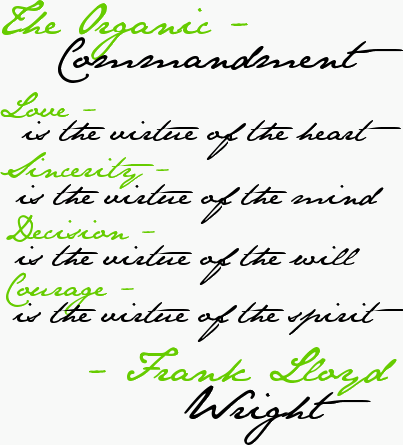 The Organic -
Commandment
Love -
is the virtue of the heart
Sincerity -
is the virtue of the mind
Decision -
is the virtue of the will
Courage -
is the virtue of the spirit
- Frank Lloyd
Wright